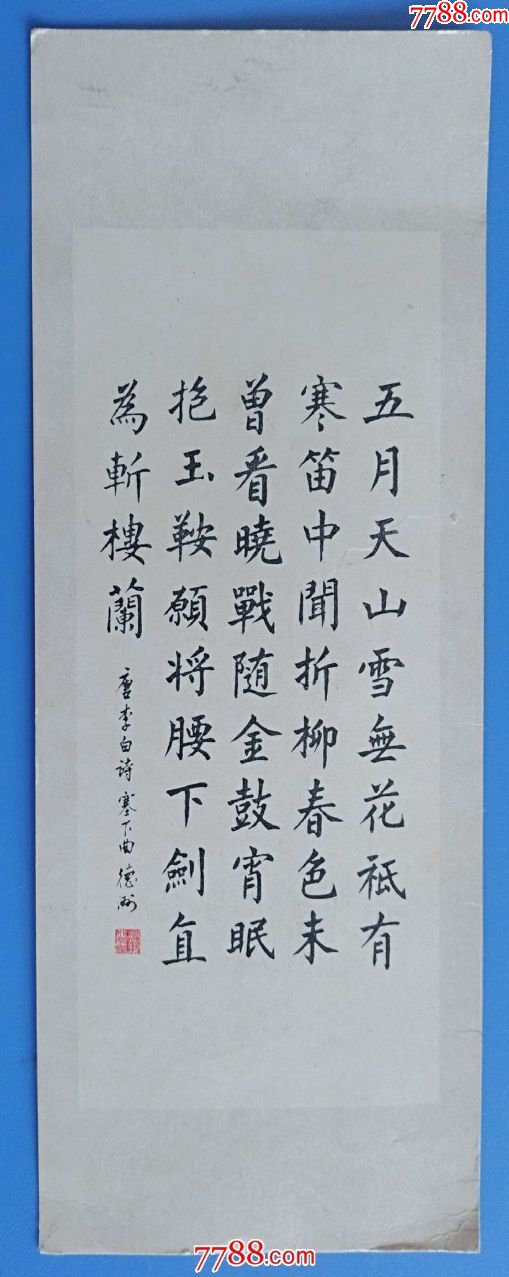 7788.com
五月天山雪無花祗有
寒笛中聞折柳春色未
曾看曉戰随金鼓宵眠
抱玉鞍願将腰下劍直
為斬樓蘭
唐李白诗塞下曲德州
7788.com